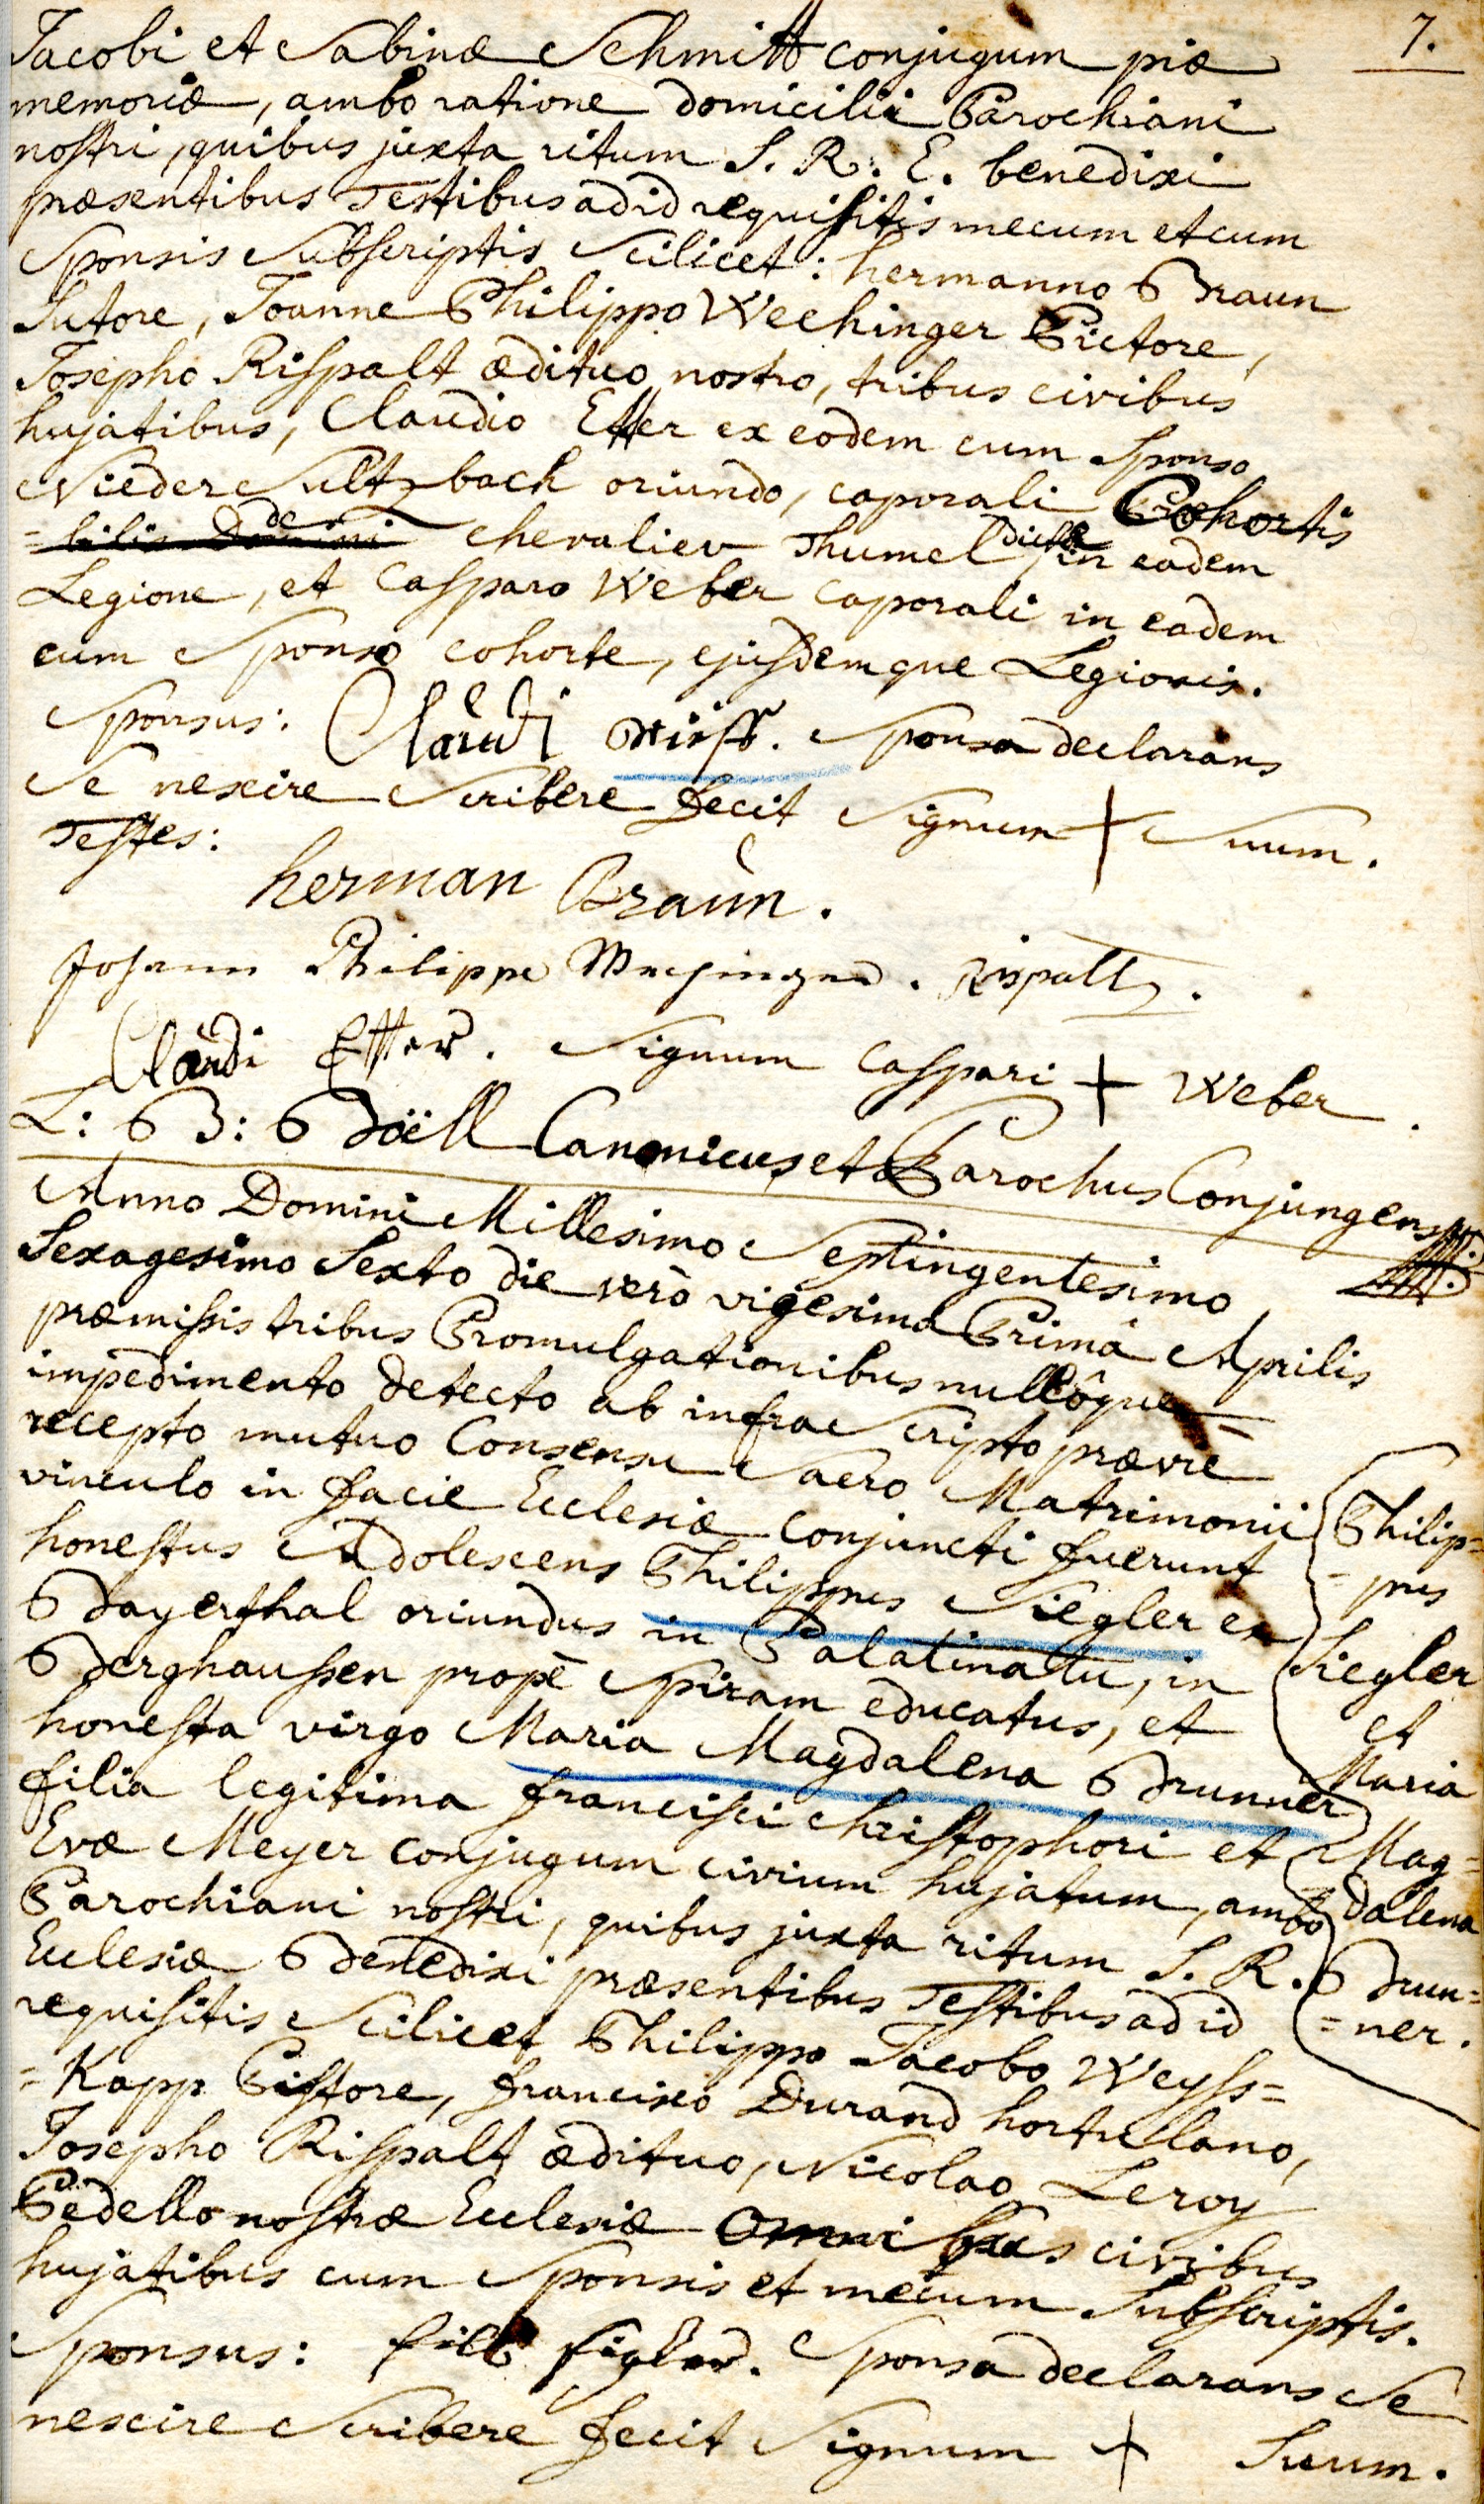 7.
Jacobi et Sabinæ Schmitt conjugum piæ
memoriæ, ambo ratione domicilii Parochiani
nostri, quibus juxta ritum S. R. E. benedixi
præsentibus Testibus ad id requisitis mecum et cum
Sponsis Subscriptis Scilicet: hermanno Braun
Sutore, Joanne Philippo Wechinger Pictore,
Josepho Rispalt ædituo nostro, tribus civibus
hujatibus, Claudio Etter ex eodem cum Sponso
Nieder Sultzbach oriundo, caporali Cohortis
de chevalier Thumel dictæ in eadem
Legione, et Casparo Weber caporali in eadem
cum Sponso cohorte, ejusdemque Legionis.
Sponsus: Claudi. Sponsa declarans
Se nescire Scribere fecit Signum + Suum.
Testes:
herman Braun.
Johann Philippe Wechinger. Rispalt.
Claudi Etter. Signum Caspari + Weber.
L: B: Böell Canonicus et Parochus Conjungens
Anno Domini Millesimo Septingentesimo
Sexagesimo Sexto die verò vigesima Primâ Aprilis
præmissis tribus Promulgationibus nullôque
impedimento detecto ab infra Scripto prævie
recepto mutuo Consensu Sacro Matrimonii
vinculo in facie Ecclesiæ conjuncti fuerunt
honestus Adolescens Philippus Siegler ex
Bayerthal oriundus in Palatinatu, in
Berghaussen propè Spiram educatus, et
honesta virgo Maria Magdalena Brunner
filia legitima francisci Christophori et
Evæ Meyer conjugum civium hujatum, ambo
Parochiani nostri, quibus juxta ritum S. R.
Ecclesiæ Benedixi præsentibus Testibus ad id
requisitis Scilicet Philippo Jacobo Weyss=
=Kapp Pistore, francisco Durand hortulano,
Josepho Rispalt ædituo, Nicolao Leroy
Pedello nostræ Ecclesiæ omnibus civibus
hujatibus cum Sponsis et mecum Subscriptis.
Sponsus: filb sigler. Sponsa declarans Se
nescire Scribere fecit Signum + Suum.
Philip=
=pus
Siegler
et
Maria
Mag=
dalena
Brun=
=ner.